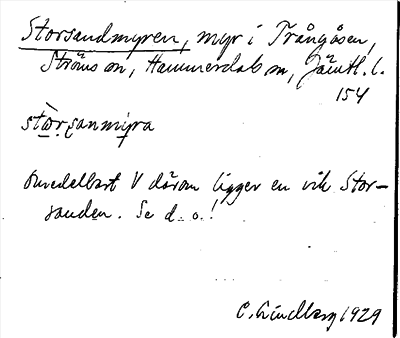 Storsandmyren, myr i Trångåsen,
Ströms sn, Hammerdals sn, Jämtl. l.
154
stòrsanmyra
Omedelbart V därom ligger en vik Stor-
sanden. Se d. o.!
C. Lindberg 1929